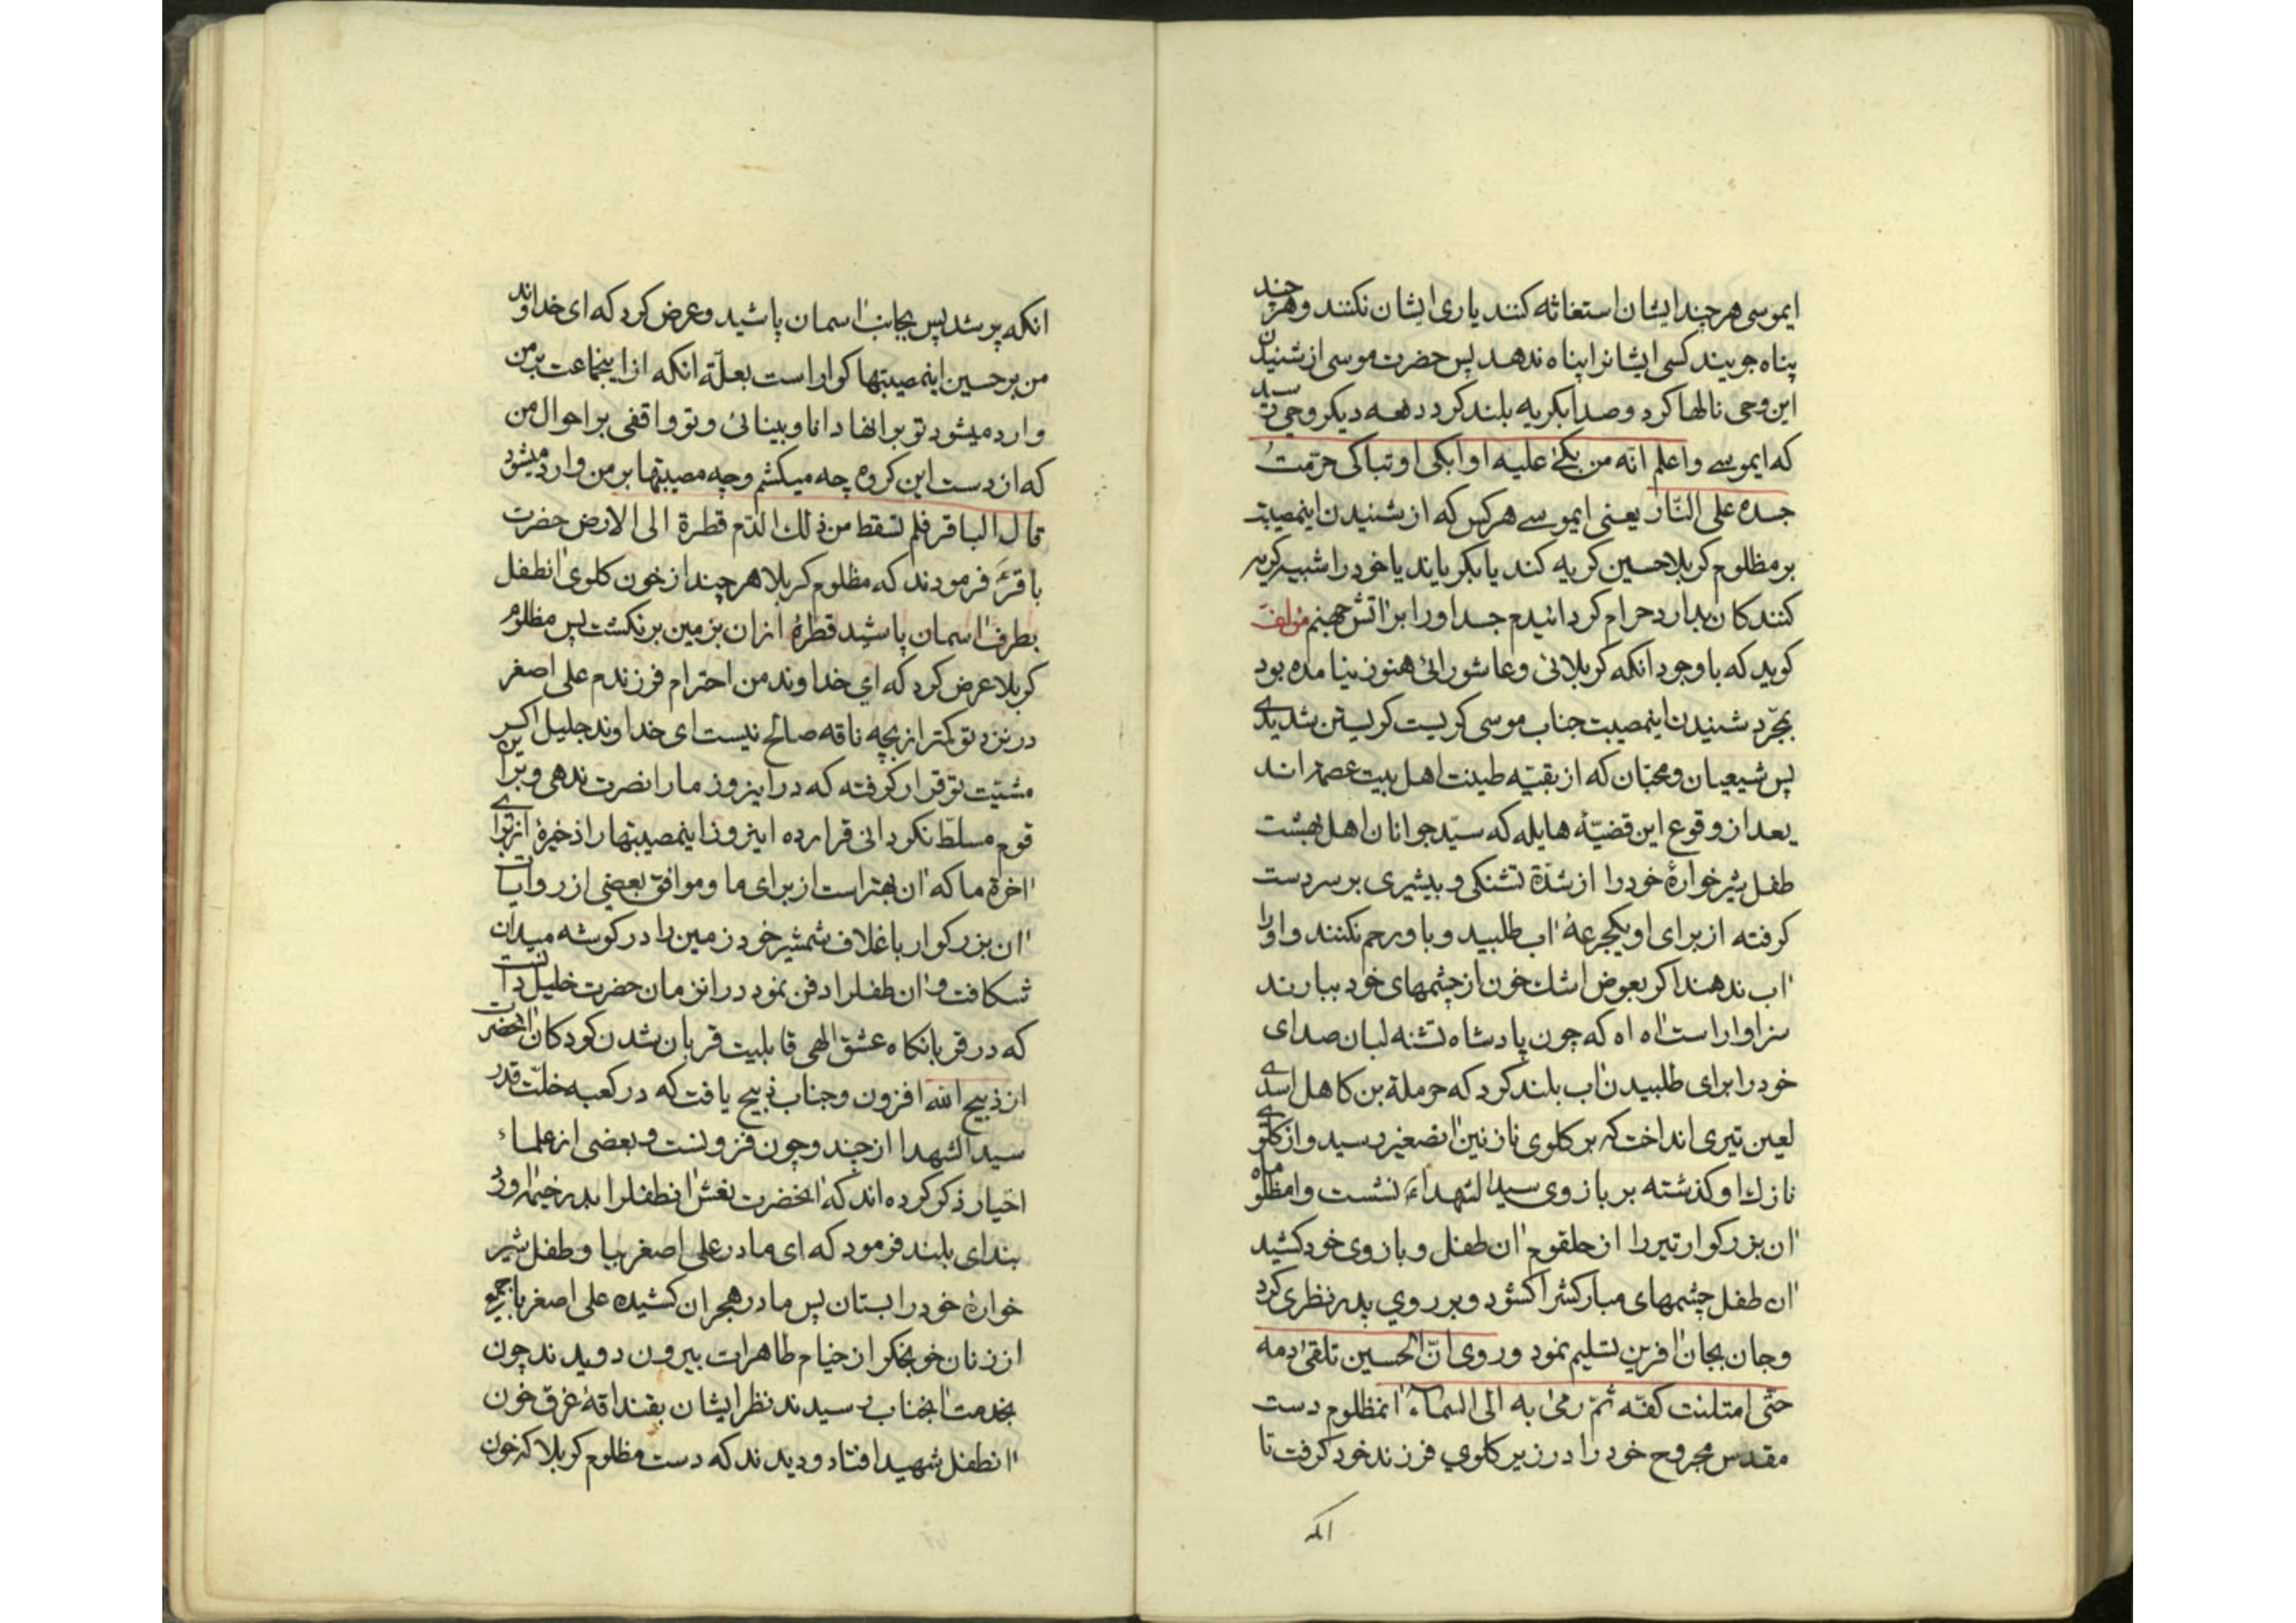 ایموسی هر چند ایشان استغاثه کنند یاری ایشان نکنند و هر چند
پناه جویند کسی ایشانرا پناه ندهد پس حضرت موسی از شنیدن
این وحی نالها کرد و صدا بکریه بلند کرد دفعه دیکر وحی رسید
که ایموسے واعلم انّه من بکیٰ علیه او ابکی او تباکی حرّمتُ
جسده علی النّار یعنی ایموسے هر کس که از شنیدن اینمصیبت
بر مظلوم کربلا حسین کریه کند یا بکریاند یا خود را شبیه بکریه
کنندکان بدارد حرام کردانیدم جسد او را بر اتش جهنم مؤلف
کوید که با وجود انکه کربلائی و عاشورائی هنوز نیامده بود
بمجّرد شنیدن اینمصیبت جناب موسی کریست کریستن شدیدے
پس شیعیان و محبّان که از بقیّه طینت اهل بیت عصمتاند
بعد از وقوع این قضیّهٔ هایله که سیّد جوانان اهل بهشت
طفل شیرخوارهٔ خود را از شدّة تشنکی و بیشیری بر سر دست
کرفته از برای او یکجرعهٔ اب طلبید و باو رحم نکنند و او را
اب ندهند اکر بعوض اشك خون از چشمهای خود ببارند
سزاوار است اه اه که چون پادشاه تشنه لبان صدای
خود را برای طلبیدن اب بلند کرد که حرملة بن کاهل اسدے
لعین تیری انداخت که بر کلوی نازنین انصغیر رسید و از کلوے
نازك او کذشته بر بازوی سید الشهداء نشست وامظلوماه
ان بزرکوار تیر را از حلقوم ان طفل و بازوی خود کشید
ان طفل چشمهای مبارکش را کشود و بر روی پدر نظری کرد
و جان بجان افرین تسلیم نمود و روی انّ الحسین تلقی دمه
حتّی امتلئت کفّه ثمّ رمیٰ به الی السماء انمظلوم دست
مقدس مجروح خود را در زیر کلوی فرزند خود کرفت تا
انکه
انکه پر شد پس بجانب اسمان پاشید و عرض کرد که ای خداوند
من بر حسین اینمصیبتها کوارا است بعلّة انکه از اینجماعت بر من
وارد میشود تو بر انها دانا و بینائی و تو واقفی بر احوال من
که از دست این کروه چه میکشم و چه مصیبتها بر من وارد میشود
قال الباقر فلم تسقط من ذلك الدّم قطرة الی الارض حضرت
باقرؑ فرمودند که مظلوم کربلا هر چند از خون کلوی انطفل
بطرف اسمان پاشید قطرهٔ از ان بزمین برنکشت پس مظلوم
کربلا عرض کرد که ای خداوند من احترام فرزندم علی اصغر
در نزد تو کمتر از بچه ناقه صالح نیست ای خداوند جلیل اکر
مشیّت تو قرار کرفته که در اینروز ما را نصرت ندهی و بر این
قوم مسلّط نکردانی قرار ده اینروز اینمصیبتها را ذخیرهٔ از برای
اخرة ما که ان بهتر است از برای ما و موافق بعضی از روایات
ان بزرکوار با غلاف شمشیر خود زمین را در کوشه میدان
شکافت و ان طفلرا دفن نمود در انزمان حضرت خلیل دانست
که در قربانکاه عشق الهی قابلیت قربان شدن کودکان انحضرت
از ذبیح الله افزون و جناب ذبیح یافت که در کعبه خلّت قدر
سید الشهدا از چند و چون فزونست و بعضی از علماء
اخیار ذکر کرده اند که انحضرت نعش انطفلرا بدر خیمه اورد
بندای بلند فرمود که ای مادر علی اصغر بیا و طفل شیر
خوارهٔ خود را بستان پس مادر هجران کشیده علی اصغر با جمیع
از زنان خونجکر از خیام طاهرات بیرون دویدند چون
بخدمت انجناب رسیدند نظر ایشان بقنداقهٔ غرق خون
انطفل شهید افتاد و دیدند که دست مظلوم کربلا که خون